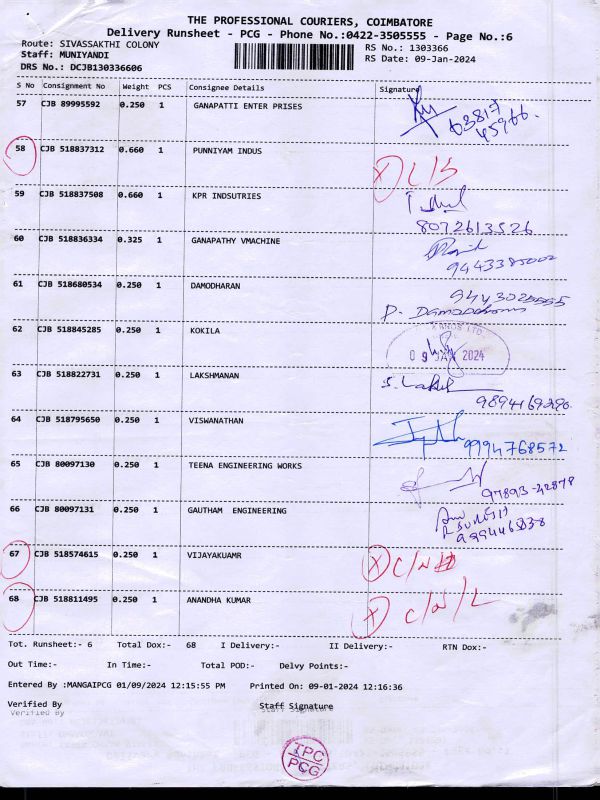 THE PROFESSIONAL COURIERS, COIMBATORE
Delivery Runsheet - PCG - Phone No.:0422-3505555 - Page No.:6
Route: SIVASSAKTHI COLONY RS No.: 1303366
Staff: MUNIYANDI RS Date: 09-Jan-2024
DRS No.: DCJB130336606
S No Consignment No Weight PCS Consignee Details Signature
57 CJB 89995592 0.250 1 GANAPATTI ENTER PRISES
63817
45966.
58 CJB 518837312 0.660 1 PUNNIYAM INDUS
59 CJB 518837508 0.660 1 KPR INDSUTRIES
8072613526
60 CJB 518836334 0.325 1 GANAPATHY VMACHINE
61 CJB 518680534 0.250 1 DAMODHARAN
P. Damodharan
62 CJB 518845285 0.250 1 KOKILA
09 JAN 2024
63 CJB 518822731 0.250 1 LAKSHMANAN
64 CJB 518795650 0.250 1 VISWANATHAN
9994768572
65 CJB 80097130 0.250 1 TEENA ENGINEERING WORKS
97893-42878
66 CJB 80097131 0.250 1 GAUTHAM ENGINEERING
67 CJB 518574615 0.250 1 VIJAYAKUAMR
68 CJB 518811495 0.250 1 ANANDHA KUMAR
X C/N/L
Tot. Runsheet:- 6 Total Dox:- 68 I Delivery:- II Delivery:- RTN Dox:-
Out Time:- In Time:- Total POD:- Delvy Points:-
Entered By :MANGAIPCG 01/09/2024 12:15:55 PM Printed On: 09-01-2024 12:16:36
Verified By Staff Signature
TPC
PCG